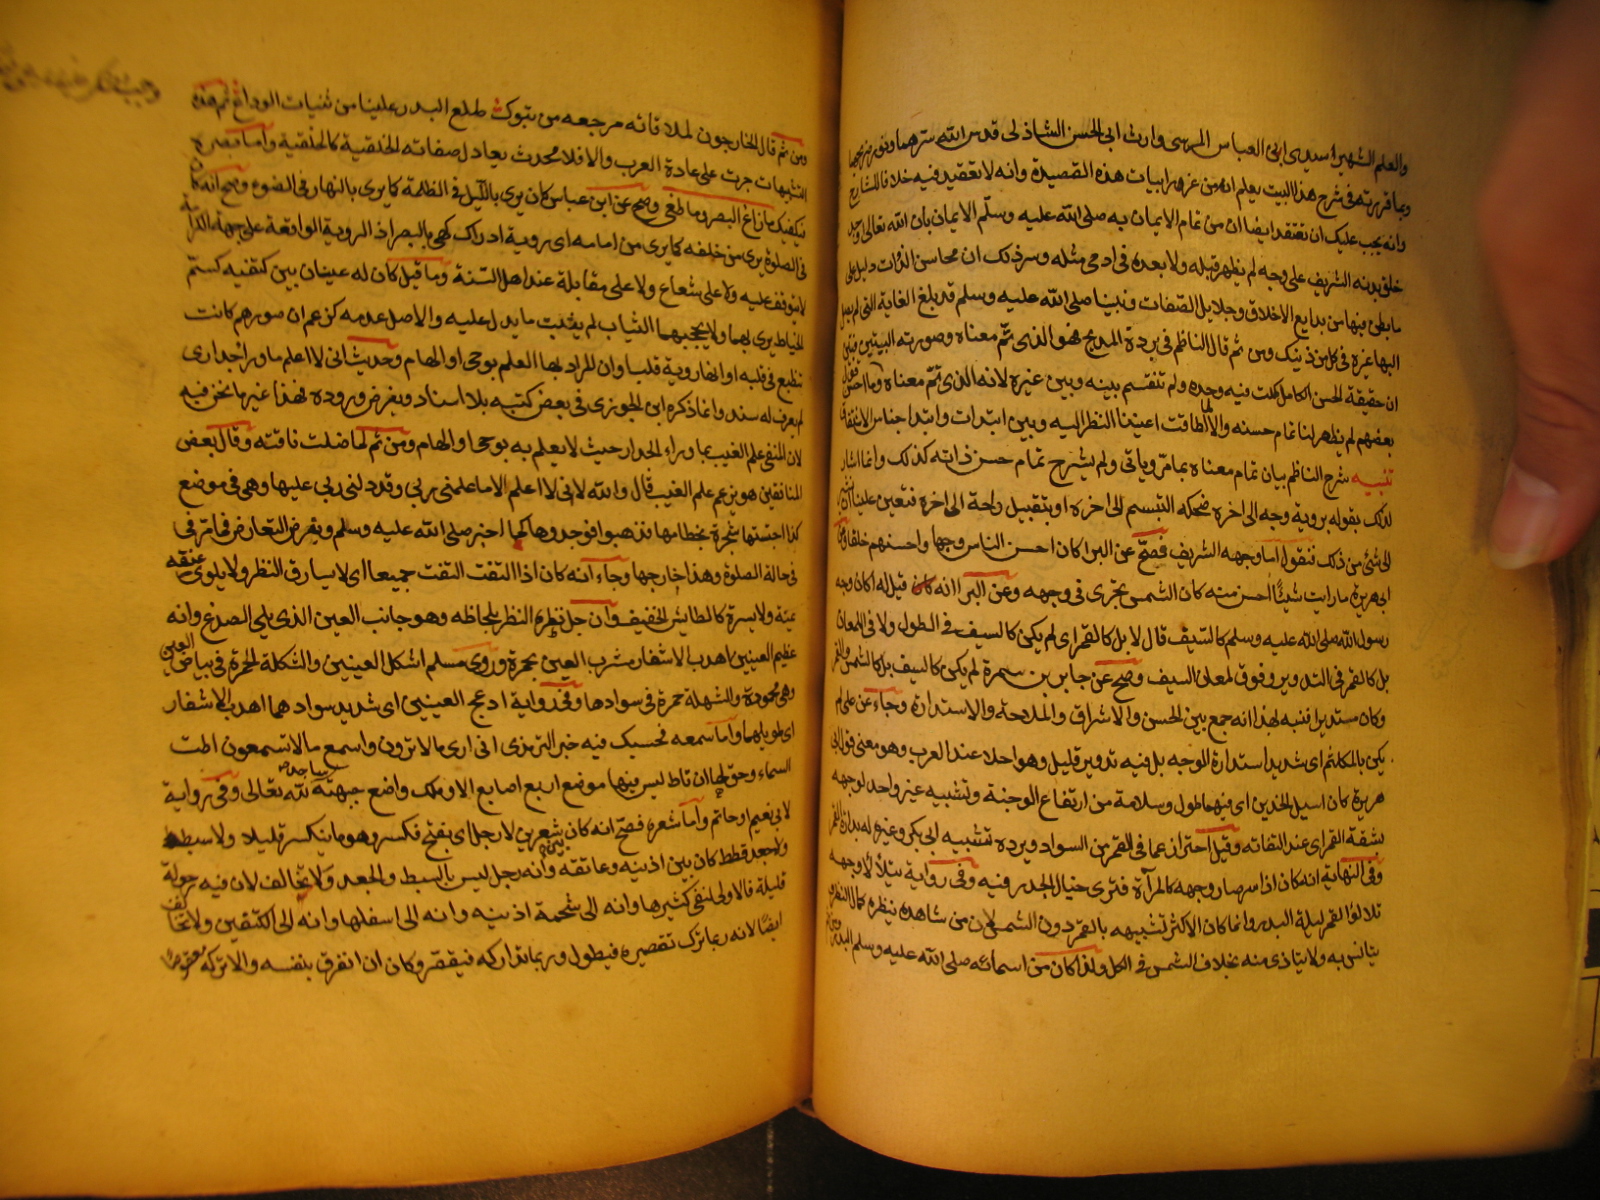 والعلم الشهير سيدى ابى العباس المرسى وارث ابى الحسن الشاذلى قدس الله سرهما ونور ضريحهما
وبما قررته فى شرح هذا البيت يعلم انه من غرر ابيات هذه القصيدة وانه لا تعقيد فيه خلافا للشارح
وانه يجب عليك ان تعتقد ايضا ان من تمام الايمان به صلى الله عليه وسلم الايمان بان الله تعالى اوجد
خلق بدنه الشريف على وجه لم يظهر قبله ولا بعده فى ادمى مثله وسر ذلك ان محاسن الذات دليل على
ما بطن فيها من بدايع الاخلاق وجلايل الصفات ونبينا صلى الله عليه وسلم قد بلغ الغاية التى لم يصل
اليها غيره فى كل من ذينك ومن ثم قال الناظم فى بردة المديح فهو الذى تم معناه وصورته البيتين فبين
ان حقيقة الحسن الكامل كملت فيه وحده ولم تنقسم بينه وبين غيره لانه الذى تم معناه وما احسن قول
بعضهم لم يظهر لنا تمام حسنه والا لما طاقت اعيننا النظر اليه وبين ابتدرات وابتدا جناس الاشتقاق
تنبيه شرح الناظم بيان تمام معناه بما مر وياتى ولم يشرح تمام حسن ذاته كذلك وانما اشار
لذلك بقوله برؤية وجه الى اخره ضحكه التبسم الى اخره او بتقبيل راحة الى اخره فتعين علينا ان نشير
الى شئ من ذلك فنقول اما وجهه الشريف فصح عن البرا كان احسن الناس وجها واحسنهم خلقا وعن
ابى هريرة ما رايت شيئا احسن منه كان الشمس تجرى فى وجهه وعن البرا انه كان قيل له اكان وجه
رسول الله صلى الله عليه وسلم كالسيف قال لا بل كالقمر اى لم يكن كالسيف فى الطول ولا فى اللمعان
بل كالقمر فى التدوير وفوق لمعان السيف وصح عن جابر بن سمرة لم يكن كالسيف بل كالشمس والقمر
وكان مستديرا فنبه بهذا انه جمع بين الحسن والاشراق والملاحة والاستدارة وجاء عن على لم
يكن بالمكلثم اى شديد استدارة الوجه بل فيه تدوير قليل وهو احلا عند العرب وهو معنى قول ابى
هريرة كان اسيل الخدين اى فيهما طول وسلامة من ارتفاع الوجنة وتشبيه غير واحد لوجهه
بشقة القمر اى عند التفاته وقيل احتراز عما فى القمر من السواد ويرده تشبيه ابى بكر وغيره له بدارة القمر
وفى النهاية انه كان اذا سر صار وجهه كالمرآة فترى خيال الجدر فيه وفى رواية يتلألأ وجهه
تلالؤ القمر ليلة البدر وانما كان الاكثر تشبيهه بالقمر دون الشمس لان من شاهده ينظره كمال النظر و
يتانس به ولا يتاذى منه بخلاف الشمس فى الكل ولذا كان من اسمائه صلى الله عليه وسلم البدر
ومن ثم قال الخارجون لملاقاته مرجعه من تبوك طلع البدر علينا من ثنيات الوداع ثم هذه
التشبيهات جرت على عادة العرب والا فلا محدث يعادل صفاته الخلقية كالخلقية واما بصره
فيكفيك ما زاغ البصر وما طغى وصح عن ابن عباس كان يرى بالليل فى الظلمة كما يرى بالنهار فى الضوء وصح انه كان
فى الصلوة يرى من خلفه كما يرى من امامه اى روية ادراك كهى بالبصر اذ الروية الواقعة على جهة الكرامة
لا يتوقف عليه ولا على شعاع ولا على مقابلة عند اهل السنة وما قيل كان له عينان بين كتفيه كسم
الخياط يرى بهما ولا يحجبهما الثياب لم يثبت ما يدل عليه والاصل عدمه كزعم ان صورهم كانت
تنطبع فى قبلته او انها روية قلبية وان المراد بها العلم بوحى او الهام وحديث انى لا اعلم ما وراء جدارى
لم يعرف له سند وانما ذكره ابن الجوزى فى بعض كتبه بلا اسناد وبفرض وروده فهذا غير ما نحن فيه
لان المنفى علم الغيب بما وراء الجدار حيث لا يعلم به بوحى او الهام ومن ثم لما ضلت ناقته وقال بعض
المنافقين هو يزعم علم الغيب قال والله لانى لا اعلم الا ما علمنى ربى وقد دلنى ربى عليها وهى فى موضع
كذا احبستها شجرة بخطامها فذهبوا فوجدوها كما اخبر صلى الله عليه وسلم وبفرض التعارض فما مر فى
فى حالة الصلوة وهذا خارجها وجاء انه كان اذا التفت التفت جميعا اى لا يسارق النظر ولا يلوى عنقه
يمنة ولا يسرة كالطايش الخفيف وان جل نظره النظر بلحاظه وهو جانب العين الذى يلى الصدغ وانه
عظيم العينين اهدب الاشفار مشرب العين بحمرة وروى مسلم اشكل العينين والشكلة الحمرة فى بياض العين
وهى محمودة والشهلة حمرة فى سوادها وفى رواية ادعج العينين اى شديد سوادهما اهدب الاشفار
اى طويلهما واما سمعه فحسبك فيه خبر الترمذى انى ارى ما لا ترون واسمع ما لا تسمعون اطت
السماء وحق لها ان تاط ليس فيها موضع اربع اصابع الا وملك واضع جبهته ساجدا لله تعالى وفى رواية
لابى نعيم او حاتم واما شعره فصح انه كان بين شعرين لا رجل اى بفتح فكسر وهو ما يتكسر قليلا ولا سبط
ولا جعد قطط كان بين اذنيه وعاتقه وانه رجل ليس بالسبط ولا الجعد ولا تخالف لان فيه جولة
قليلة فالاولى لنفى كثيرها وانه الى شحمة اذنيه وانه الى اسفلها وانه الى الكتفين ولا تخالف
ايضا لانه ربما ترك تقصيره فيطول وربما تداركه فيقصر وكان ان انفرق بنفسه والا تركه